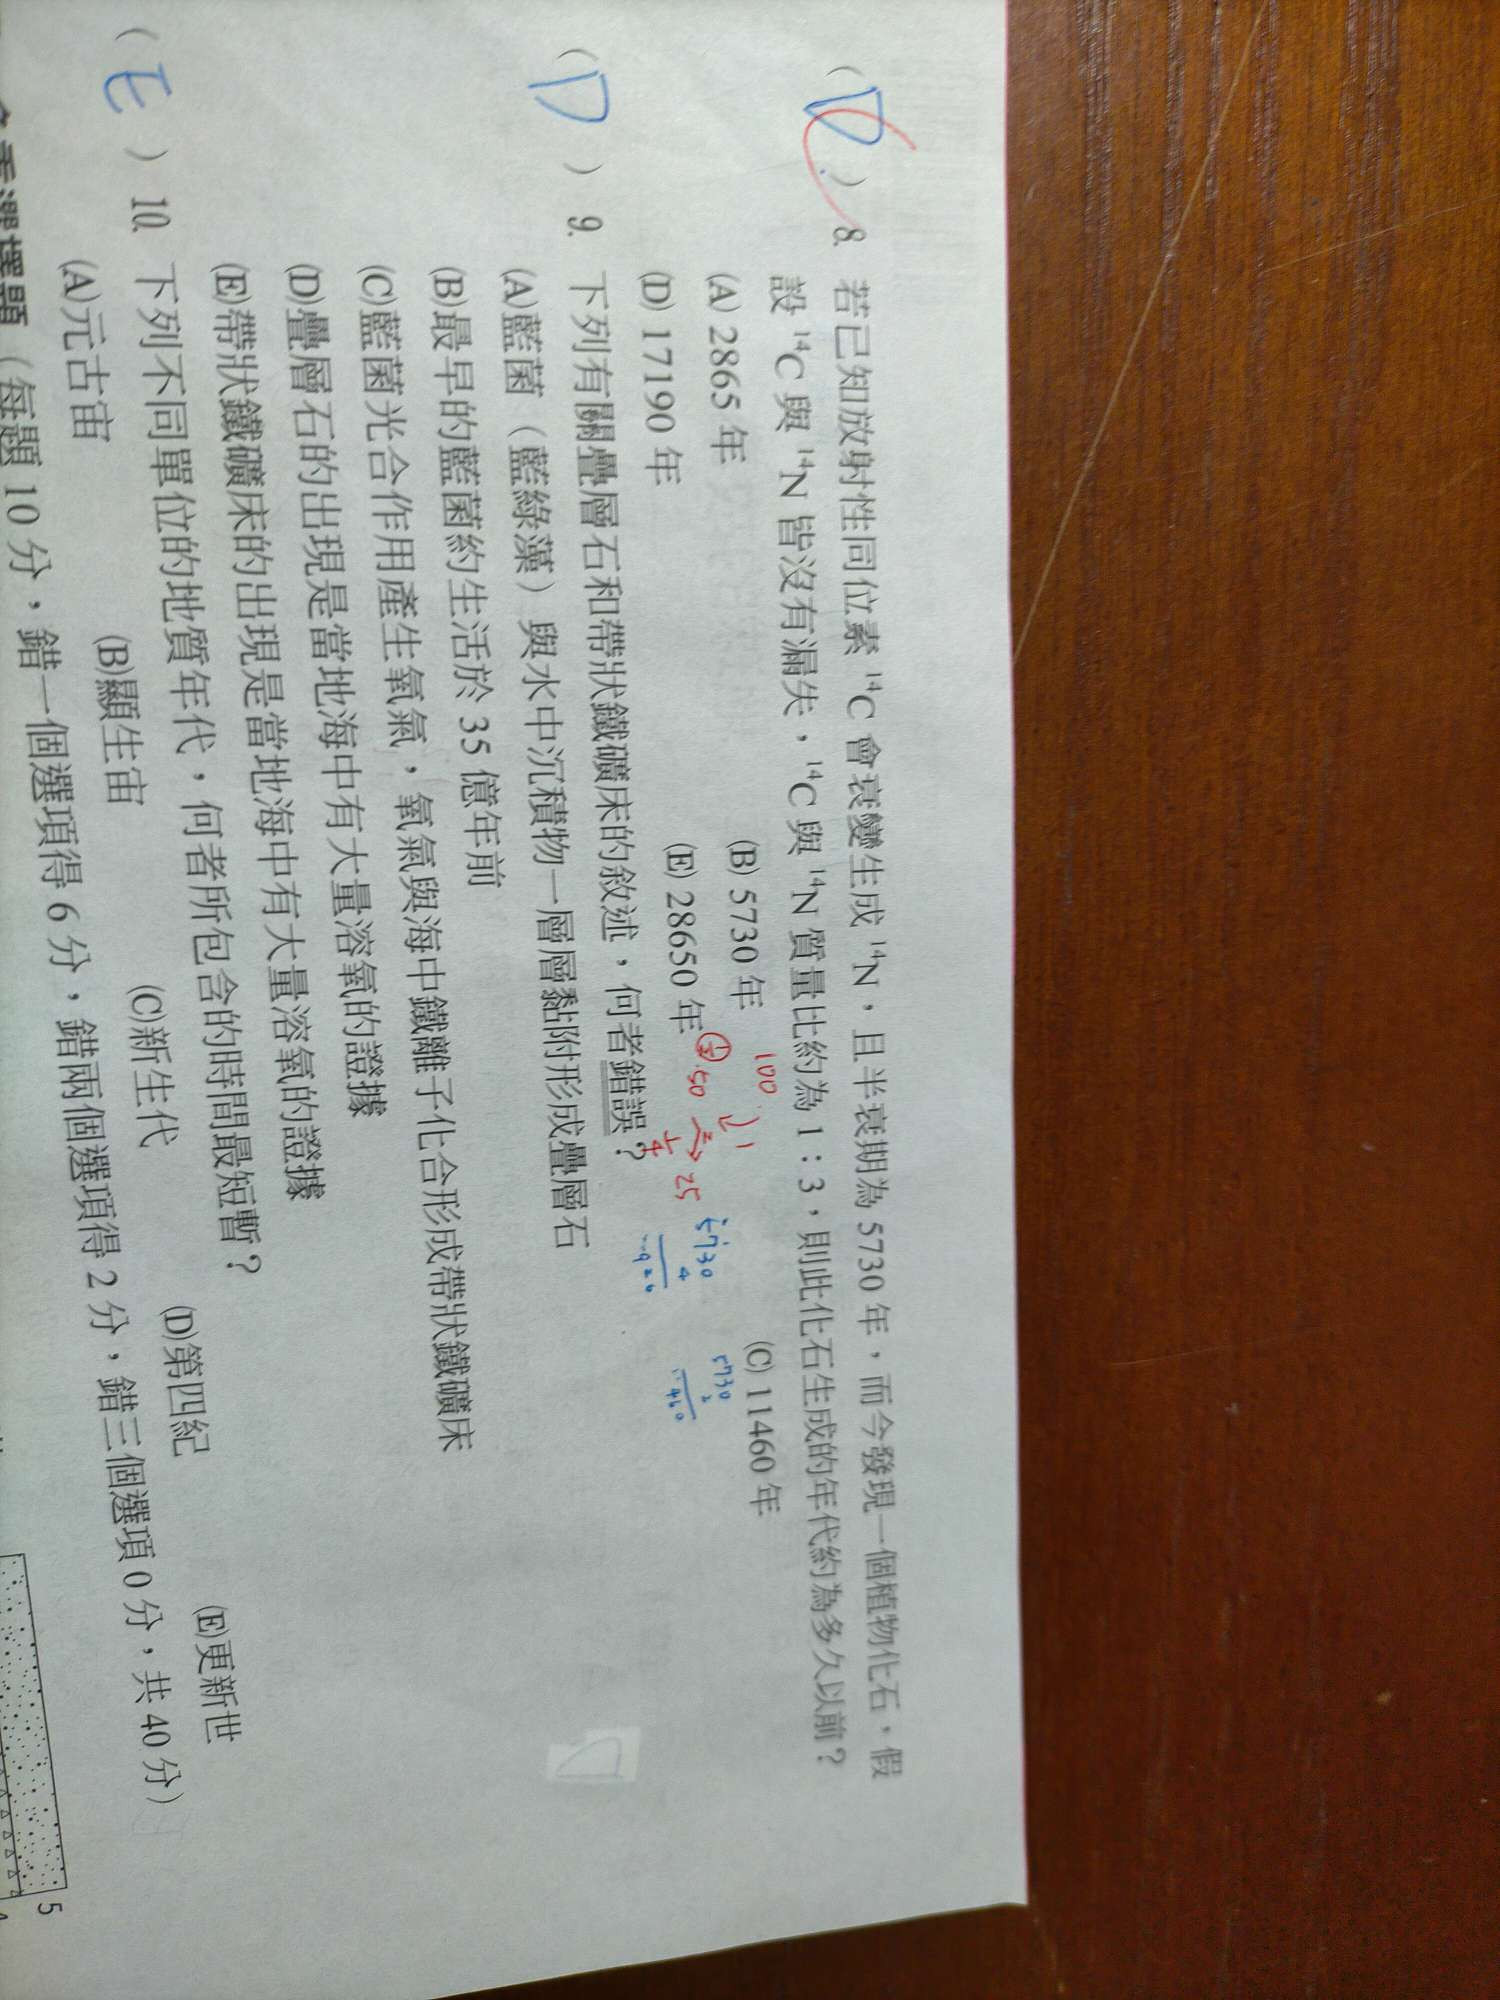 (D) 8. 若已知放射性同位素 ¹⁴C 會衰變生成 ¹⁴N，且半衰期為 5730 年，而今發現一個植物化石，假
設 ¹⁴C 與 ¹⁴N 皆沒有漏失，¹⁴C 與 ¹⁴N 質量比約為 1：3，則此化石生成的年代約為多久以前？
(A) 2865 年 (B) 5730 年 (C) 11460 年
(D) 17190 年 (E) 28650 年
100
1
1/2 50 25
1/4
5730
4
920
5730
2
11460
(D) 9. 下列有關疊層石和帶狀鐵礦床的敘述，何者錯誤？
(A)藍菌（藍綠藻）與水中沉積物一層層黏附形成疊層石
(B)最早的藍菌約生活於 35 億年前
(C)藍菌光合作用產生氧氣，氧氣與海中鐵離子化合形成帶狀鐵礦床
(D)疊層石的出現是當地海中有大量溶氧的證據
(E)帶狀鐵礦床的出現是當地海中有大量溶氧的證據
(E) 10. 下列不同單位的地質年代，何者所包含的時間最短暫？
(A)元古宙 (B)顯生宙 (C)新生代 (D)第四紀 (E)更新世
選擇題（每題 10 分，錯一個選項得 6 分，錯兩個選項得 2 分，錯三個選項 0 分，共 40 分）
5